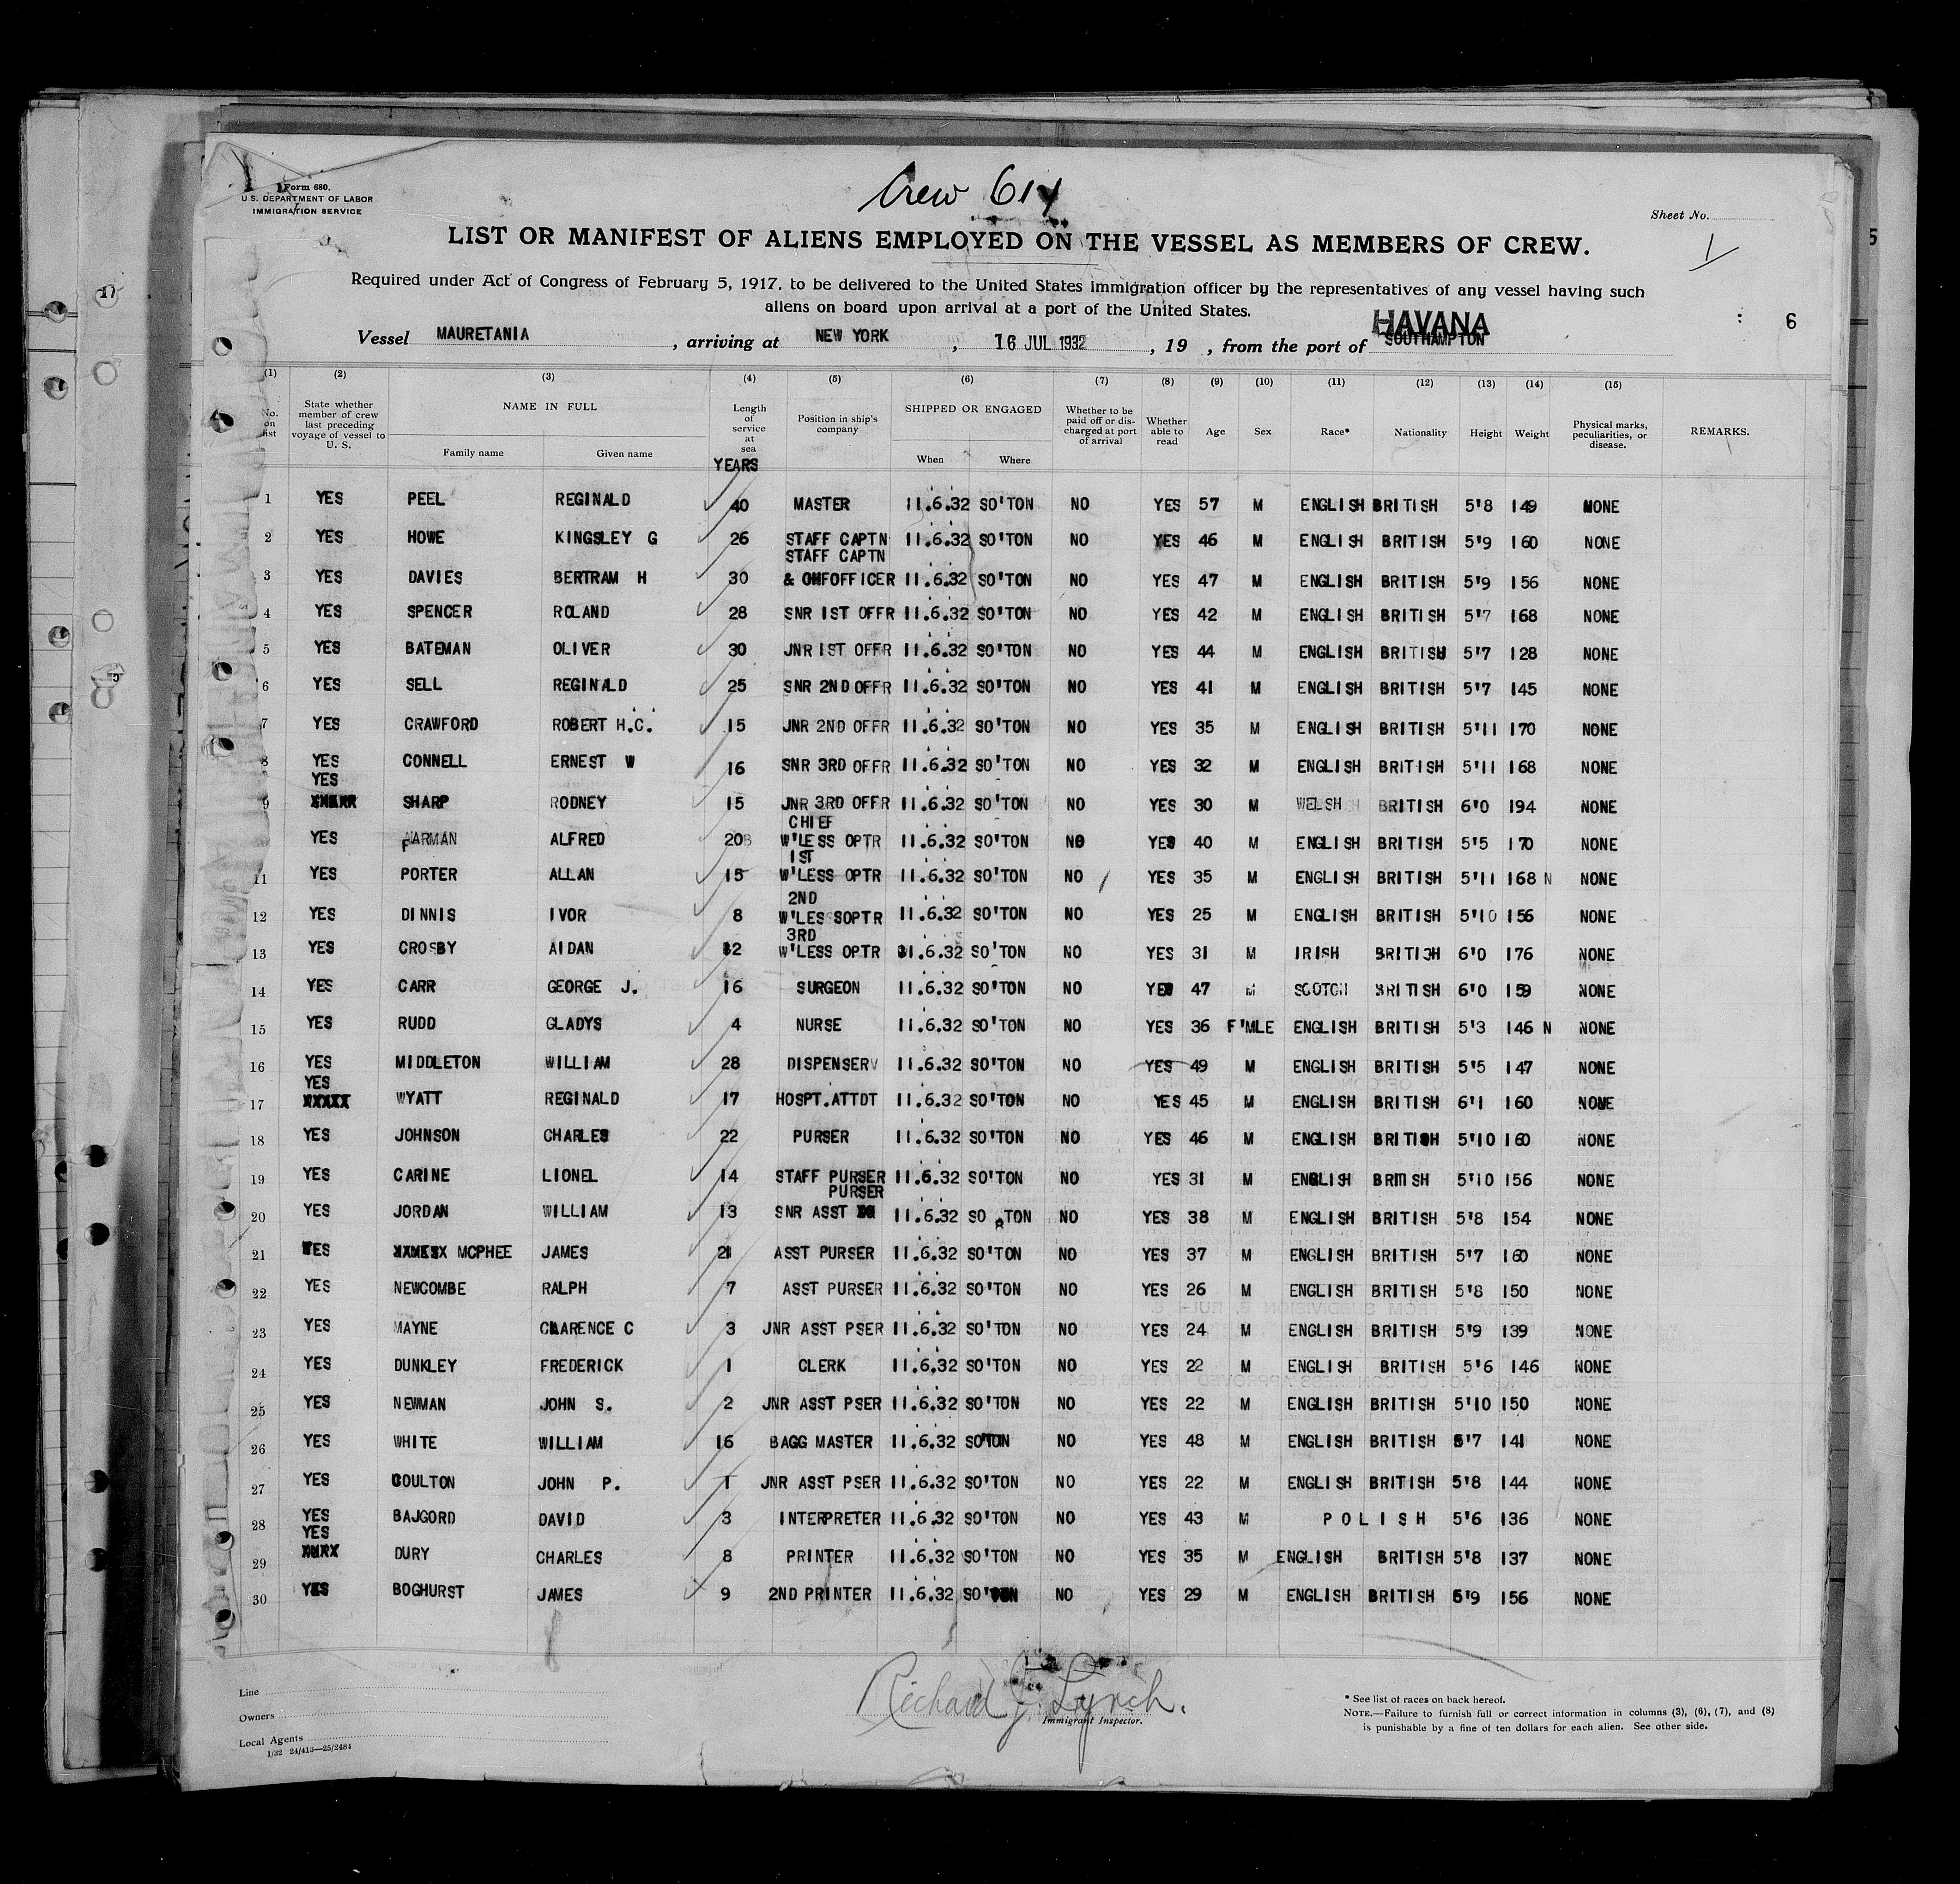 Form 680.
U.S. DEPARTMENT OF LABOR
IMMIGRATION SERVICE
Crew 614
Sheet No.
1
LIST OR MANIFEST OF ALIENS EMPLOYED ON THE VESSEL AS MEMBERS OF CREW.
Required under Act of Congress of February 5, 1917, to be delivered to the United States immigration officer by the representatives of any vessel having such
aliens on board upon arrival at a port of the United States.
HAVANA
6
Vessel MAURETANIA, arriving at NEW YORK, 16 JUL 1932, 19 , from the port of SOUTHAMPTON
(1) (2) (3) (4) (5) (6) (7) (8) (9) (10) (11) (12) (13) (14) (15)
No. on list | State whether member of crew last preceding voyage of vessel to U. S. | NAME IN FULL Family name Given name | Length of service at sea YEARS | Position in ship's company | SHIPPED OR ENGAGED When Where | Whether to be paid off or discharged at port of arrival | Whether able to read | Age | Sex | Race* | Nationality | Height | Weight | Physical marks, peculiarities, or disease. | REMARKS.
1 YES PEEL REGINALD 40 MASTER 11.6.32 SO'TON NO YES 57 M ENGLISH BRITISH 5'8 149 NONE
2 YES HOWE KINGSLEY G 26 STAFF CAPTN 11.6.32 SO'TON NO YES 46 M ENGLISH BRITISH 5'9 160 NONE
STAFF CAPTN
3 YES DAVIES BERTRAM H 30 & CHFOFFICER 11.6.32 SO'TON NO YES 47 M ENGLISH BRITISH 5'9 156 NONE
4 YES SPENCER ROLAND 28 SNR 1ST OFFR 11.6.32 SO'TON NO YES 42 M ENGLISH BRITISH 5'7 168 NONE
5 YES BATEMAN OLIVER 30 JNR 1ST OFFR 11.6.32 SO'TON NO YES 44 M ENGLISH BRITISH 5'7 128 NONE
6 YES SELL REGINALD 25 SNR 2ND OFFR 11.6.32 SO'TON NO YES 41 M ENGLISH BRITISH 5'7 145 NONE
7 YES CRAWFORD ROBERT H.C. 15 JNR 2ND OFFR 11.6.32 SO'TON NO YES 35 M ENGLISH BRITISH 5'11 170 NONE
8 YES CONNELL ERNEST W 16 SNR 3RD OFFR 11.6.32 SO'TON NO YES 32 M ENGLISH BRITISH 5'11 168 NONE
YES
9 SHARP RODNEY 15 JNR 3RD OFFR 11.6.32 SO'TON NO YES 30 M WELSH BRITISH 6'0 194 NONE
CHIEF
YES FARMAN ALFRED 20 W'LESS OPTR 11.6.32 SO'TON NO YES 40 M ENGLISH BRITISH 5'5 170 NONE
1ST
11 YES PORTER ALLAN 15 W'LESS OPTR 11.6.32 SO'TON NO YES 35 M ENGLISH BRITISH 5'11 168 N NONE
2ND
12 YES DINNIS IVOR 8 W'LESSOPTR 11.6.32 SO'TON NO YES 25 M ENGLISH BRITISH 5'10 156 NONE
3RD
13 YES CROSBY AIDAN 12 W'LESS OPTR 11.6.32 SO'TON NO YES 31 M IRISH BRITISH 6'0 176 NONE
14 YES CARR GEORGE J. 16 SURGEON 11.6.32 SO'TON NO YES 47 M SCOTCH BRITISH 6'0 159 NONE
15 YES RUDD GLADYS 4 NURSE 11.6.32 SO'TON NO YES 36 F'MLE ENGLISH BRITISH 5'3 146 N NONE
16 YES MIDDLETON WILLIAM 28 DISPENSER 11.6.32 SO'TON NO YES 49 M ENGLISH BRITISH 5'5 147 NONE
YES
17 XXXXX WYATT REGINALD 17 HOSPT.ATTDT 11.6.32 SO'TON NO YES 45 M ENGLISH BRITISH 6'1 160 NONE
18 YES JOHNSON CHARLES 22 PURSER 11.6.32 SO'TON NO YES 46 M ENGLISH BRITISH 5'10 160 NONE
19 YES CARINE LIONEL 14 STAFF PURSER 11.6.32 SO'TON NO YES 31 M ENGLISH BRITISH 5'10 156 NONE
PURSER
20 YES JORDAN WILLIAM 13 SNR ASST 11.6.32 SO TON NO YES 38 M ENGLISH BRITISH 5'8 154 NONE
21 YES MCPHEE JAMES 21 ASST PURSER 11.6.32 SO'TON NO YES 37 M ENGLISH BRITISH 5'7 160 NONE
22 YES NEWCOMBE RALPH 7 ASST PURSER 11.6.32 SO'TON NO YES 26 M ENGLISH BRITISH 5'8 150 NONE
23 YES MAYNE CLARENCE C 3 JNR ASST PSER 11.6.32 SO'TON NO YES 24 M ENGLISH BRITISH 5'9 139 NONE
24 YES DUNKLEY FREDERICK 1 CLERK 11.6.32 SO'TON NO YES 22 M ENGLISH BRITISH 5'6 146 NONE
25 YES NEWMAN JOHN S. 2 JNR ASST PSER 11.6.32 SO'TON NO YES 22 M ENGLISH BRITISH 5'10 150 NONE
26 YES WHITE WILLIAM 16 BAGG MASTER 11.6.32 SO'TON NO YES 48 M ENGLISH BRITISH 5'7 141 NONE
27 YES COULTON JOHN P. 1 JNR ASST PSER 11.6.32 SO'TON NO YES 22 M ENGLISH BRITISH 5'8 144 NONE
28 YES BAJGORD DAVID 3 INTERPRETER 11.6.32 SO'TON NO YES 43 M POLISH 5'6 136 NONE
YES
29 DURY CHARLES 8 PRINTER 11.6.32 SO'TON NO YES 35 M ENGLISH BRITISH 5'8 137 NONE
30 YES BOGHURST JAMES 9 2ND PRINTER 11.6.32 SO'TON NO YES 29 M ENGLISH BRITISH 5'9 156 NONE
Line
Owners
Local Agents
1/32 24/413—25/2484
Richard J. Lynch.
Immigrant Inspector.
* See list of races on back hereof.
NOTE.—Failure to furnish full or correct information in columns (3), (6), (7), and (8)
is punishable by a fine of ten dollars for each alien. See other side.